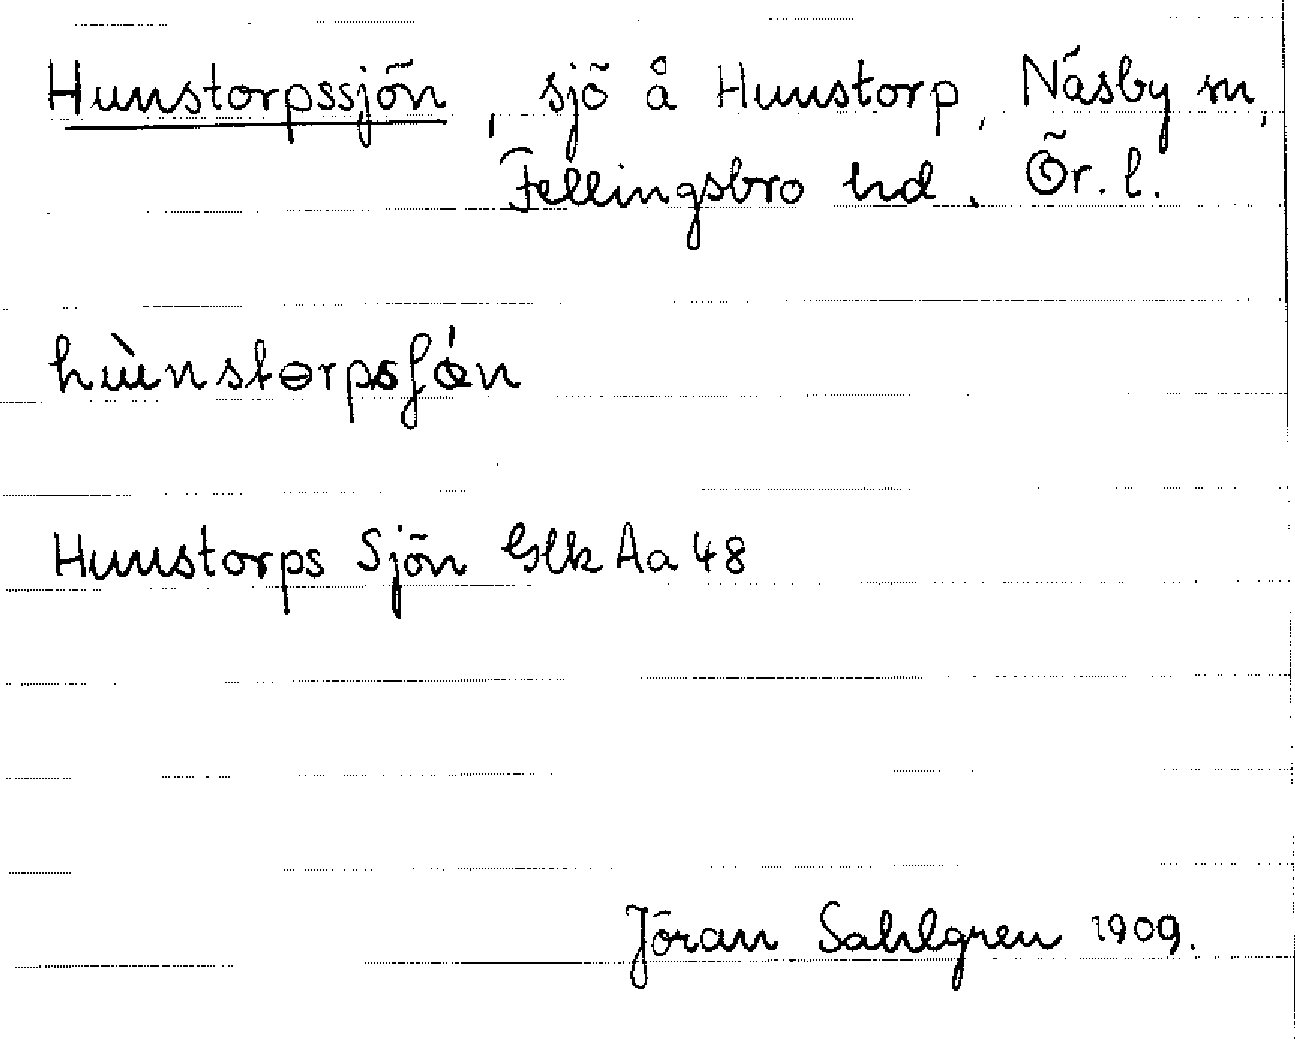 Hunstorpssjön, sjö å Hunstorp, Näsby sn,
Fellingsbro hd. Ör. l.
hùnstɵrpsʃǿn
Hunstorps Sjön GlkAa48
Jöran Sahlgren 1909.